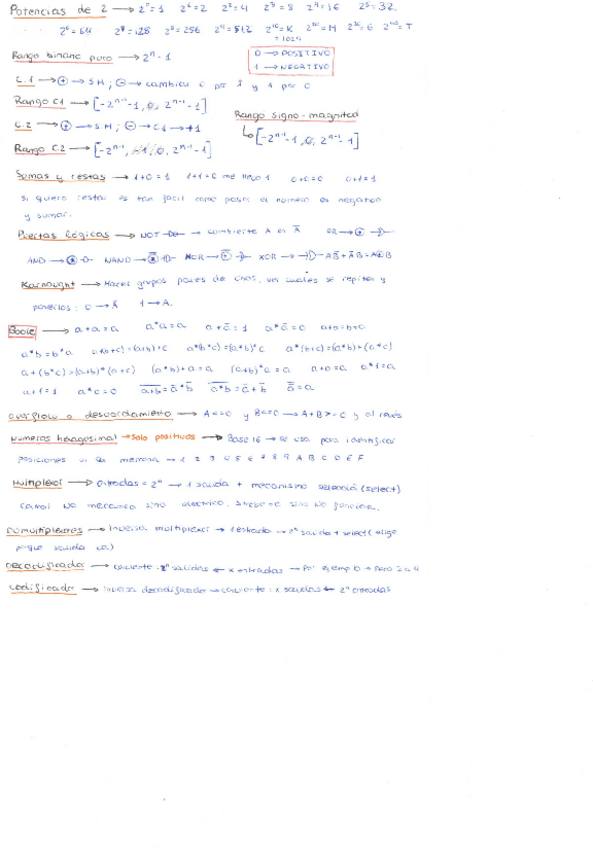 Potencias de 2 → 2⁰=1 2¹=2 2²=4 2³=8 2⁴=16 2⁵=32.
2⁶=64 2⁷=128 2⁸=256 2⁹=512 2¹⁰=K =1024 2²⁰=M 2³⁰=G 2⁴⁰=T
Rango binario puro → 2ⁿ-1
0 → POSITIVO
1 → NEGATIVO
C.1 → ⊕ → SM; ⊖ → cambian 0 por 1 y 1 por 0
Rango C1 → [-2ⁿ⁻¹-1, 0, 2ⁿ⁻¹-1]
Rango signo-magnitud
↳ [-2ⁿ⁻¹-1, 0, 2ⁿ⁻¹-1]
C.2 → ⊕ → SM; ⊖ → C1 → +1
Rango C2 → [-2ⁿ⁻¹, 0, 2ⁿ⁻¹-1]
Sumas y restas → 1+0=1 1+1=0 me llevo 1 0+0=0 0+1=1
si quiero restar es tan facil como pasar el numero es negativo
y sumar.
Puertas lógicas → NOT → convierte A en Ā OR →
AND → NAND → NOR → XOR → AB̄+ĀB=A⊕B
Karnought → Haces grupos pares de unos, ver cuales se repiten y
ponerlos: 0 → Ā 1 → A.
Boole → a+a=a a*a=a a+ā=1 a*ā=0 a+b=b+a
a*b=b*a a+(b+c)=(a+b)+c a*(b*c)=(a*b)*c a*(b+c)=(a*b)+(a*c)
a+(b*c)=(a+b)*(a+c) (a*b)+a=a (a+b)*a=a a+0=a a*1=a
a+1=1 a*0=0
overflow o desbordamiento → A<=0 y B<=0 → A+B>=0 y al revés
Números hexagesimal → Solo positivos → Base 16 → se usa para identificar
posiciones en la memoria → 1 2 3 4 5 6 7 8 9 A B C D E F
Multiplexor → entradas = 2ⁿ → 1 salida + mecanismo selección (select)
canal no mecanico sino electrico. Strobe=0 sino no funciona.
Demultiplexores → Inversa multiplexor → 1 entrada → 2ⁿ salida + select (elige
porque salida va)
Decodificador → convierte: 2ⁿ salidas ← x entradas → Por ejemplo →
Codificador → Inversa decodificador → convierte: x salidas ← 2ⁿ entradas